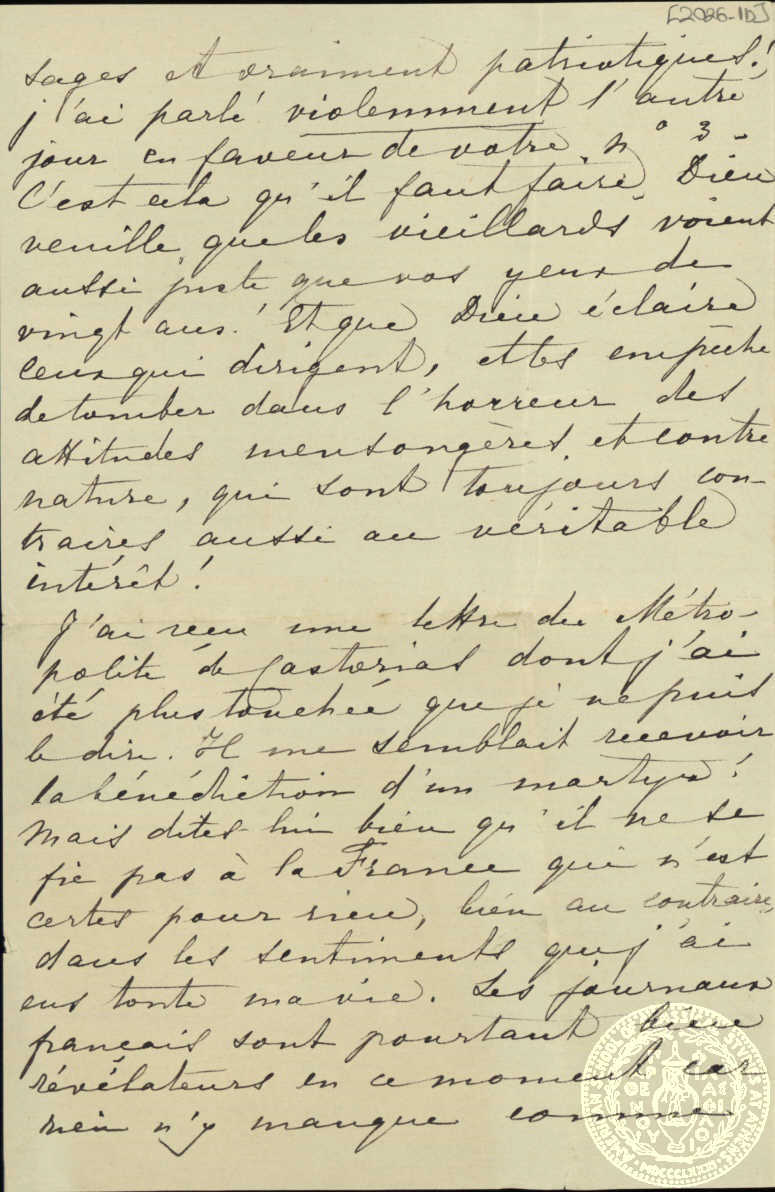 [2026-1D]
sages et vraiment patriotiques!
j'ai parlé violemment l'autre
jour en faveur de votre n° 3 -
C'est cela qu'il faut faire. Dieu
veuille que les vieillards voient
aussi juste que vos yeux de
vingt ans! Et que Dieu éclaire
ceux qui dirigent, et les empêche
de tomber dans l'horreur des
attitudes mensongères et contre
nature, qui sont toujours con-
traires aussi au véritable
intérêt!
J'ai reçu une lettre du Métro-
polite de Castorias dont j'ai
été plus touchée que je ne puis
le dire. Il me semblait recevoir
la bénédiction d'un martyr!
Mais dites-lui bien qu'il ne se
fie pas à la France qui n'est
certes pour rien, bien au contraire,
dans les sentiments que j'ai
eus toute ma vie. Les journaux
français sont pourtant bien
révélateurs en ce moment car
rien n'y manque comme
AMERICAN SCHOOL OF CLASSICAL STUDIES AT ATHENS
MDCCCLXXXI